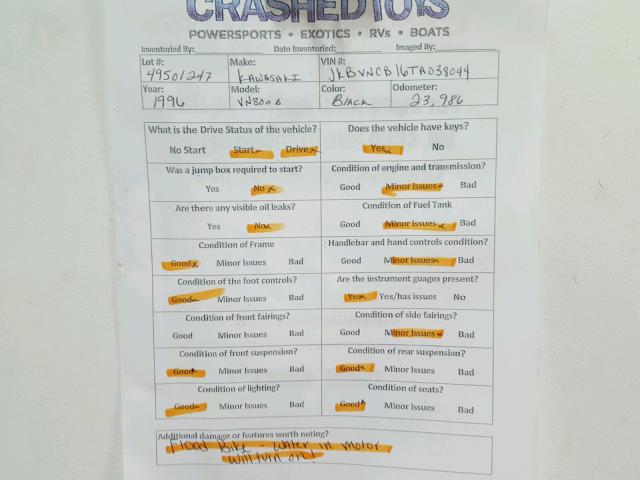 CRASHEDTOYS
POWERSPORTS • EXOTICS • RVs • BOATS
Inventoried By: Date Inventoried: Imaged By:
Lot #: Make: VIN #:
49501247 KAWASAKI JKBVNCB16TA038044
Year: Model: Color: Odometer:
1996 VN800 Black 23,986
What is the Drive Status of the vehicle? Does the vehicle have keys?
No Start Start Drive Yes No
Was a jump box required to start? Condition of engine and transmission?
Yes No Good Minor Issues Bad
Are there any visible oil leaks? Condition of Fuel Tank
Yes No Good Minor Issues Bad
Condition of Frame Handlebar and hand controls condition?
Good Minor Issues Bad Good Minor Issues Bad
Condition of the foot controls? Are the instrument guages present?
Good Minor Issues Bad Yes Yes/has issues No
Condition of front fairings? Condition of side fairings?
Good Minor Issues Bad Good Minor Issues Bad
Condition of front suspension? Condition of rear suspension?
Good Minor Issues Bad Good Minor Issues Bad
Condition of lighting? Condition of seats?
Good Minor Issues Bad Good Minor Issues Bad
Additional damage or features worth noting?
Flood Bike - Water in motor
Will turn on!